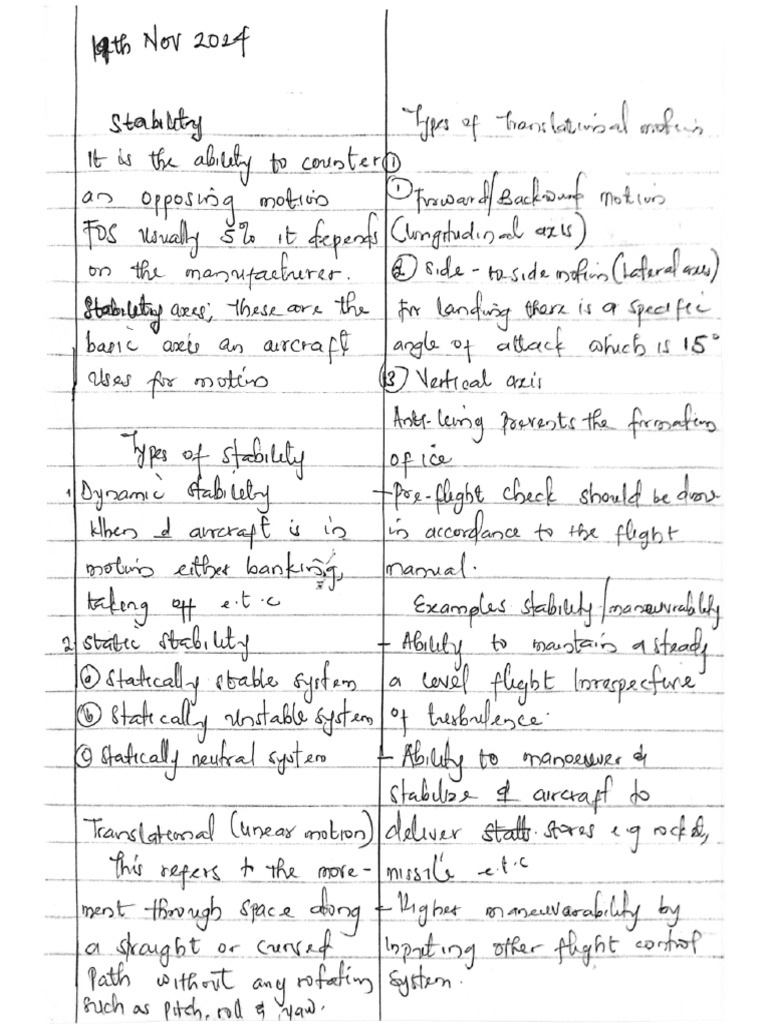 19th Nov 2024
Stability
It is the ability to counter
an opposing motion
FOS usually 5% it depends
on the manufacturer.
Stability axes; these are the
basic axis an aircraft
uses for motion
Types of stability
1 Dynamic stability
When d aircraft is in
motion either banking,
taking off e.t.c
2 static stability
(a) statically stable system
(b) statically unstable system
(c) statically neutral system
Translational (linear motion)
This refers to the move-
ment through space along
a straight or curved
Path without any rotation
such as pitch, roll & yaw.
Types of Translational motion
(1)
(1) Forward/Backward motion
(longitudinal axis)
(2) side - to side motion (lateral axis)
for landing there is a specific
angle of attack which is 15°
(3) Vertical axis
Anti-icing prevents the formation
of ice
- Pre-flight check should be done
in accordance to the flight
manual.
Examples stability/maneuvrability
- Ability to maintain a steady
a level flight Irrespective
of turbulence.
- Ability to manoeuver &
stabilize d aircraft to
deliver stores e.g rocket,
missile e.t.c
- Higher maneuvarability by
Inputing other flight control
system.